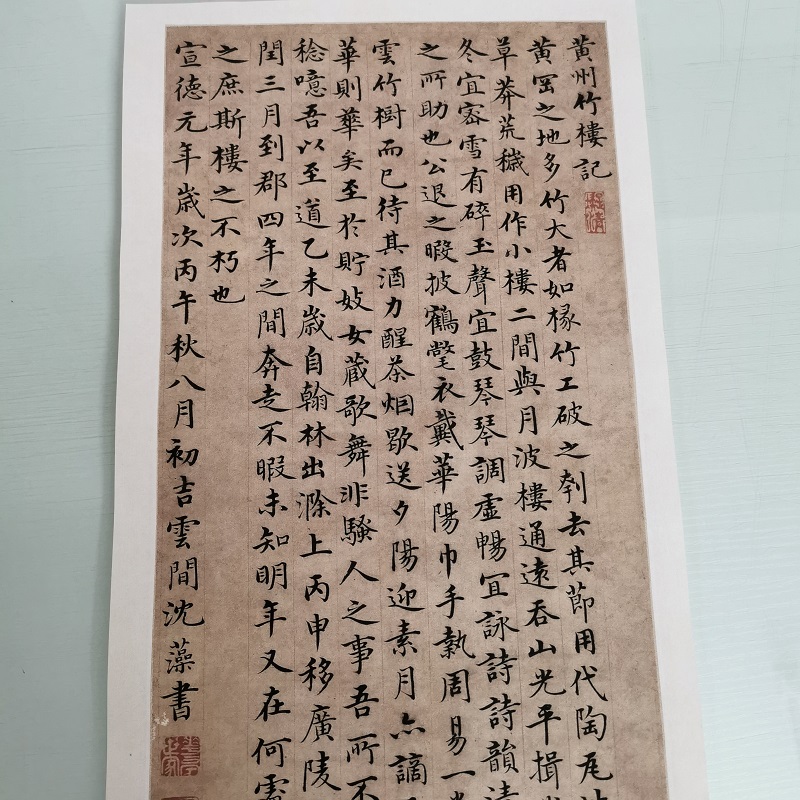 黄州竹樓記
黄岡之地多竹大者如椽竹工破之刳去其節用代陶瓦
草莽荒穢用作小樓二間與月波樓通遠吞山光平揖
冬宜密雪有碎玉聲宜鼓琴琴調虛暢宜詠詩詩韻清
之所助也公退之暇披鶴氅衣戴華陽巾手執周易一
雲竹樹而已待其酒力醒茶烟歇送夕陽迎素月亦謫
華則華矣至於貯妓女藏歌舞非騷人之事吾所不
稔噫吾以至道乙未歲自翰林出滁上丙申移廣陵
閏三月到郡四年之間奔走不暇未知明年又在何處
之庶斯樓之不朽也
宣德元年歲次丙午秋八月初吉雲間沈藻書